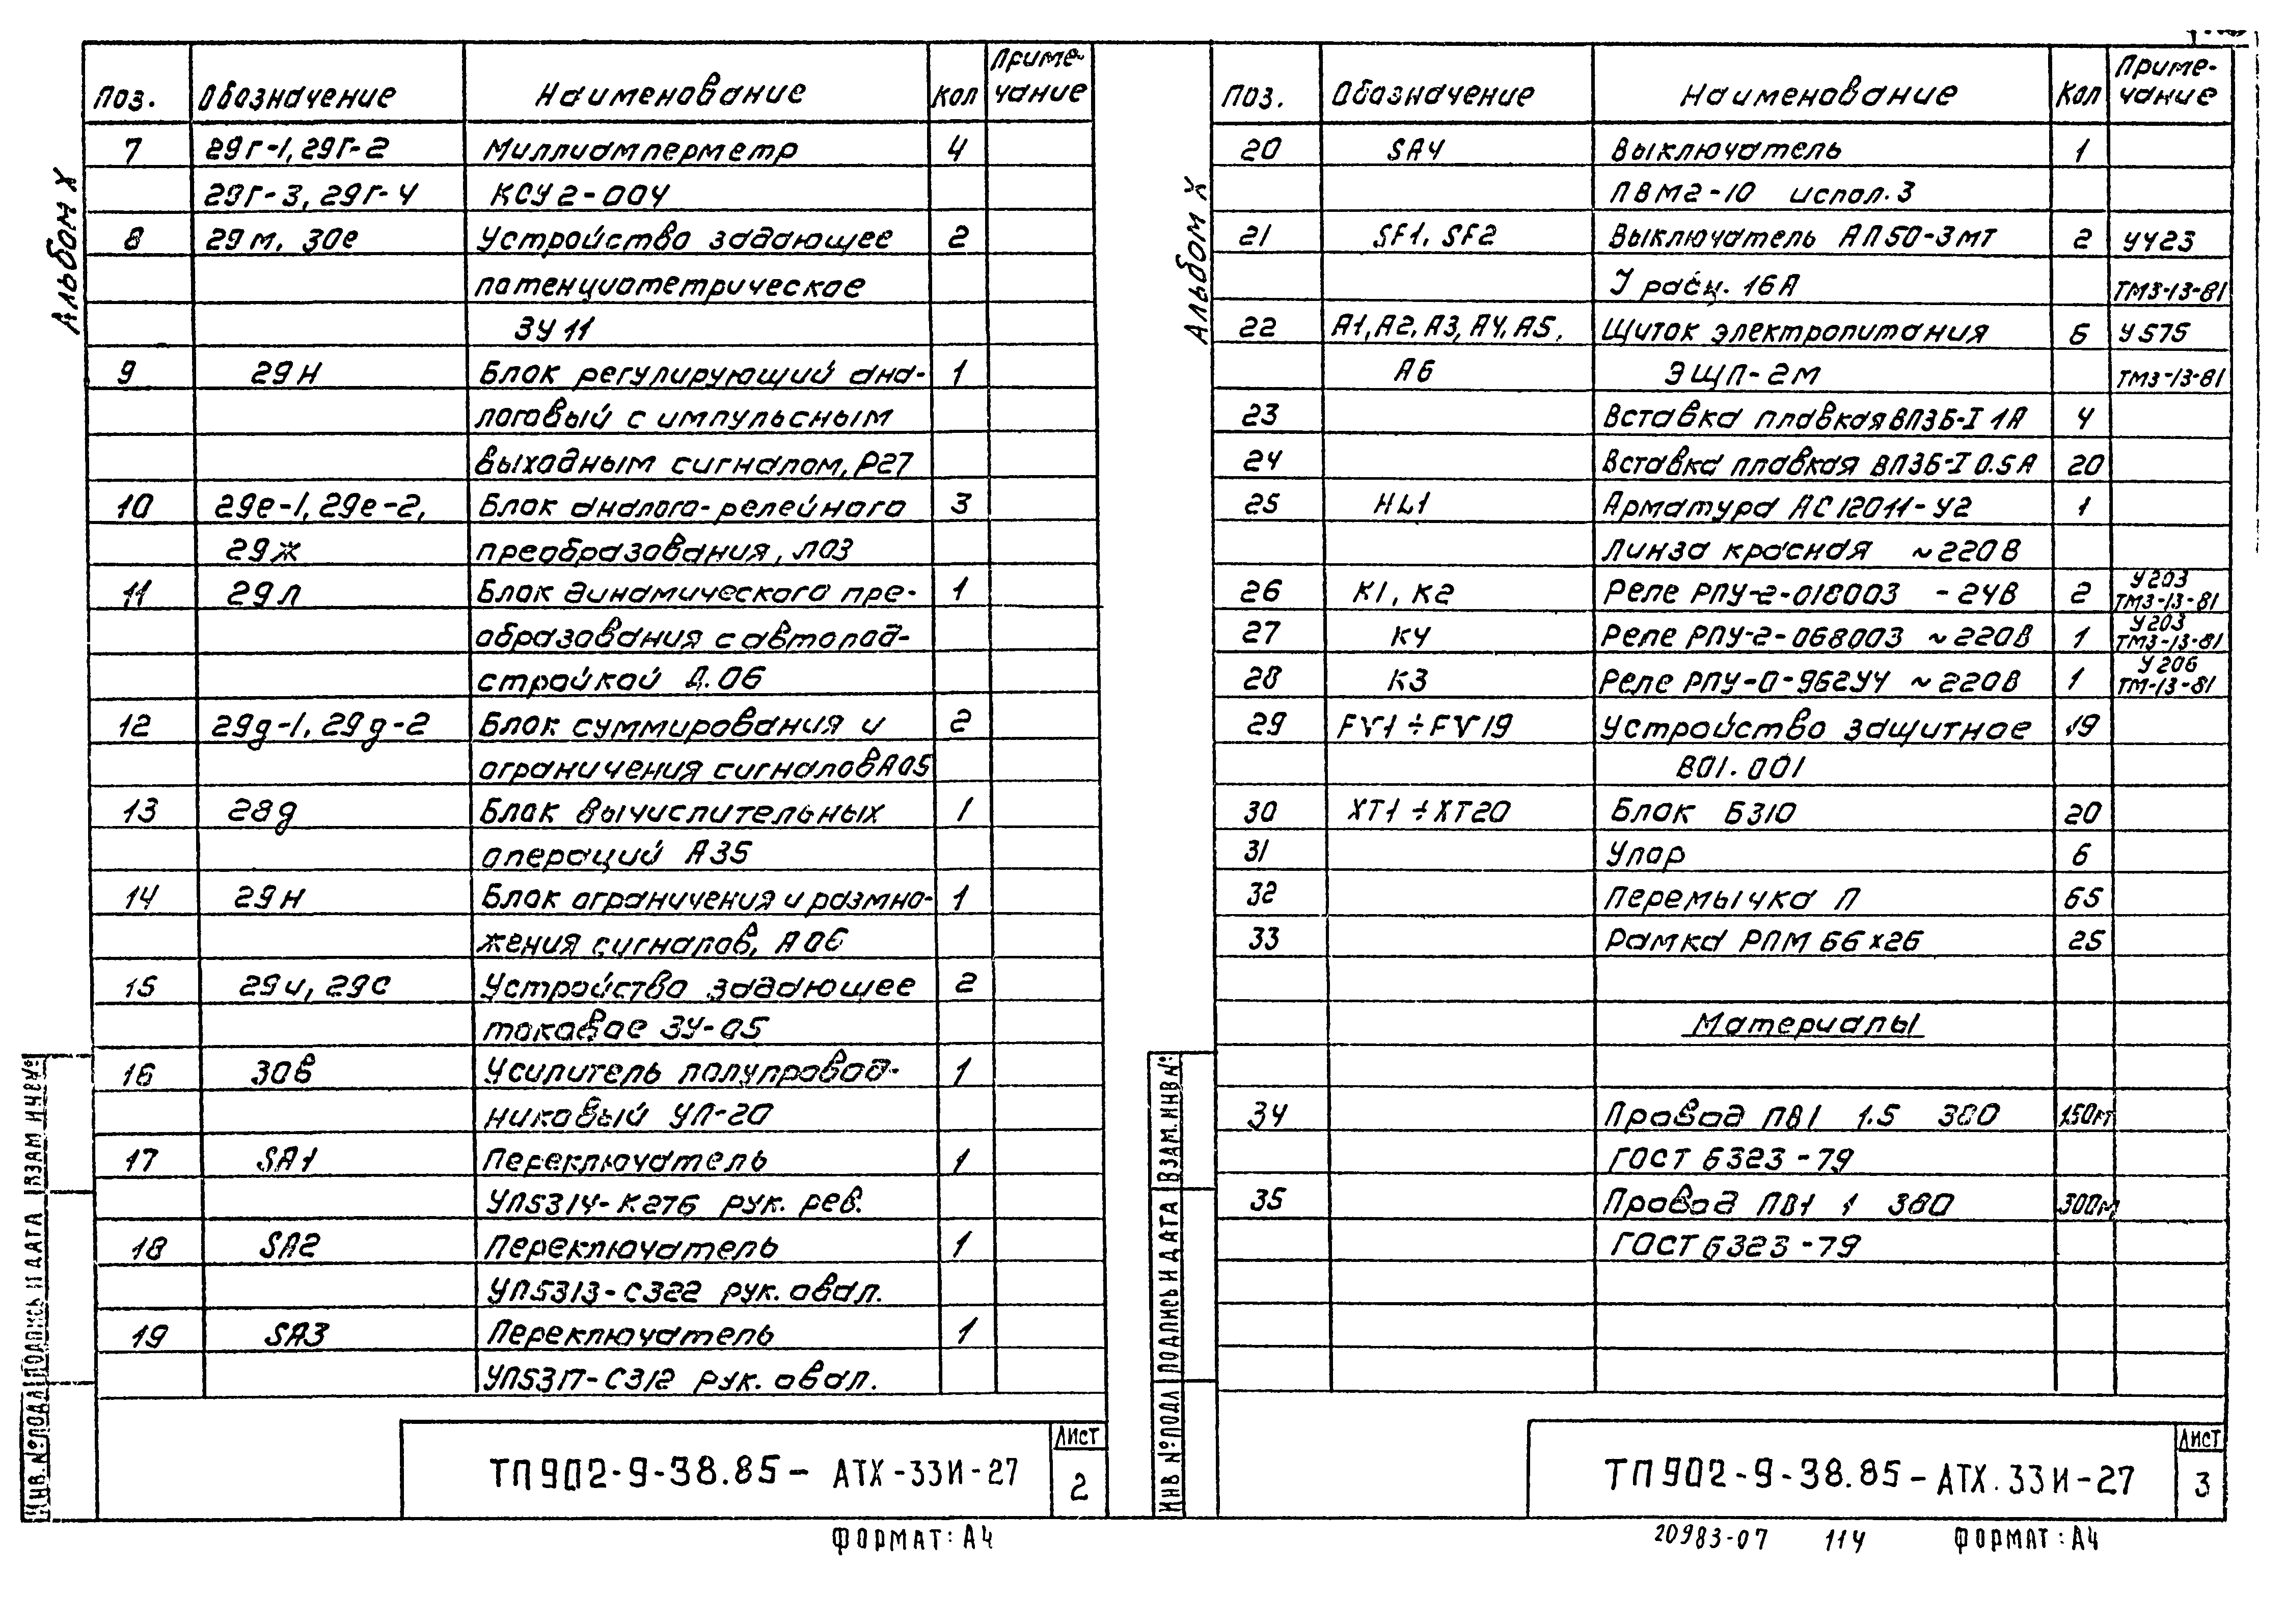 Альбом X
Поз. Обозначение Наименование Кол Приме-
чание
7 29г-1, 29г-2 Миллиамперметр 4
29г-3, 29г-4 КСУ2-004
8 29м, 30е Устройство задающее 2
потенциометрическое
ЗУ11
9 29н Блок регулирующий ана- 1
логовый с импульсным
выходным сигналом, Р27
10 29е-1, 29е-2, Блок аналого-релейного 3
29ж преобразования, Л03
11 29л Блок динамического пре- 1
образования с автопод-
стройкой Д.06
12 29д-1, 29д-2 Блок суммирования и 2
ограничения сигналов А05
13 28д Блок вычислительных 1
операций А35
14 29н Блок ограничения и размно- 1
жения сигналов, А06
15 29и, 29с Устройство задающее 2
токовое ЗУ-05
16 30в Усилитель полупровод- 1
никовый УП-20
17 SA1 Переключатель 1
УП5314-К276 рук. рев.
18 SA2 Переключатель 1
УП5313-С322 рук. овал.
19 SA3 Переключатель 1
УП5317-С312 рук. овал.
Инв. №подл Подпись и дата Взам инв№
ТП902-9-38.85- АТХ-33И-27
Лист
2
Формат: А4
Альбом X
Поз. Обозначение Наименование Кол Приме-
чание
20 SA4 Выключатель 1
ПВМ2-10 испол. 3
21 SF1, SF2 Выключатель АП50-3МТ 2 У423
I расц. 16А ТМ3-13-81
22 А1, А2, А3, А4, А5, Щиток электропитания 6 У575
А6 ЭЩП-2М ТМ3-13-81
23 Вставка плавкая ВП3Б-I 1А 4
24 Вставка плавкая ВП3Б-I 0.5А 20
25 HL1 Арматура АС12011-У2 1
линза красная ~220В
26 К1, К2 Реле РПУ-2-018003 - 24В 2 У203
ТМ3-13-81
27 К4 Реле РПУ-2-068003 ~220В 1 У203
ТМ3-13-81
28 К3 Реле РПУ-0-962У4 ~220В 1 У206
ТМ-13-81
29 FV1÷FV19 Устройство защитное 19
801.001
30 ХТ1÷ХТ20 Блок Б310 20
31 Упор 6
32 Перемычка П 65
33 Рамка РПМ 66х26 25
Материалы
34 Провод ПВ1 1.5 380 150м
ГОСТ 6323-79
35 Провод ПВ1 1 380 300м
ГОСТ 6323-79
Инв №подл Подпись и дата Взам. инв№
ТП902-9-38.85-АТХ.33И-27
Лист
3
20983-07 114 Формат: А4